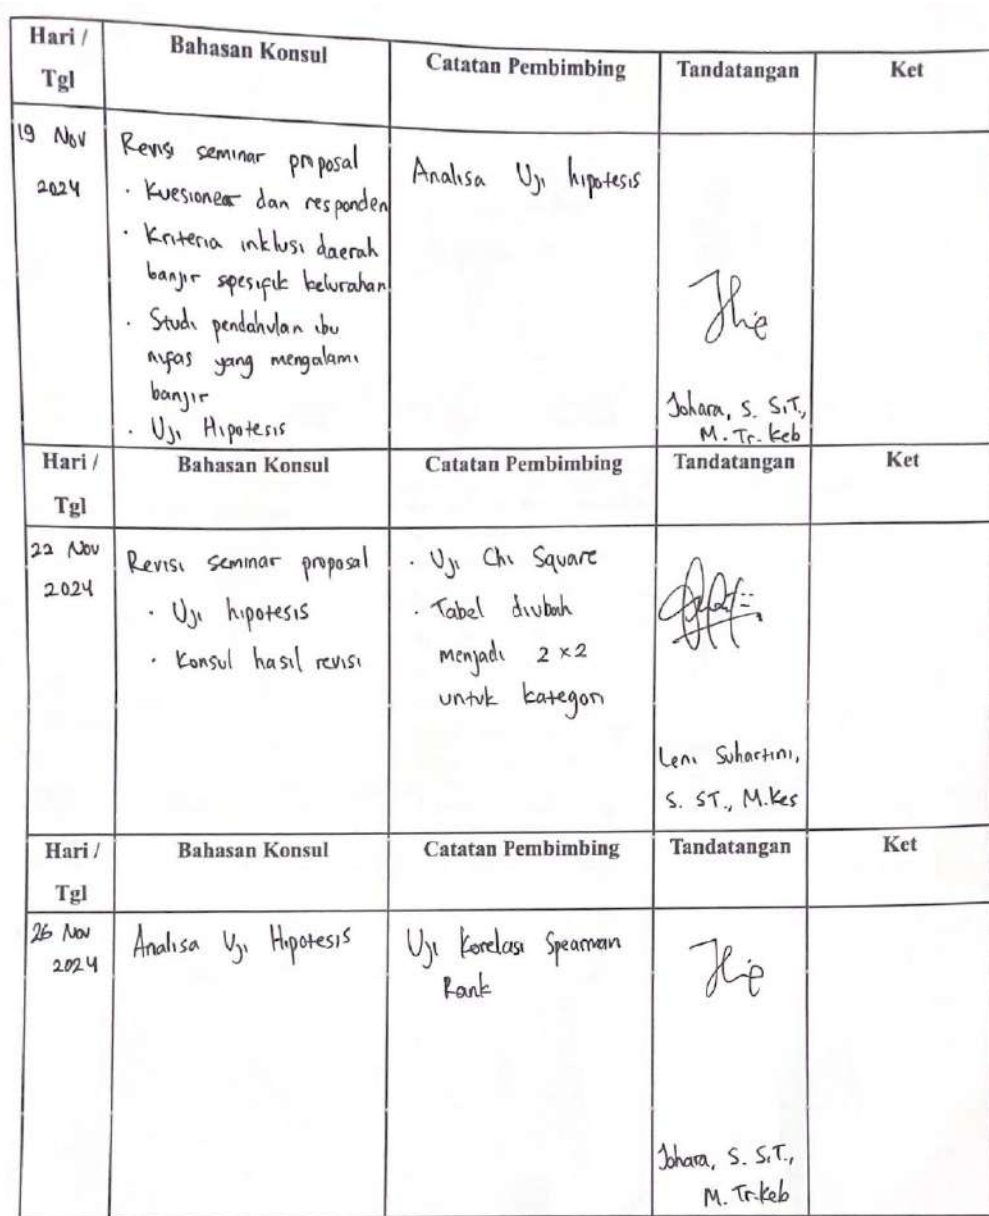 Hari / Tgl Bahasan Konsul Catatan Pembimbing Tandatangan Ket
19 Nov 2024
Revisi seminar proposal
· Kuesioner dan responden
· Kriteria inklusi daerah
banjir spesifik kelurahan
· Studi pendahulan ibu
nifas yang mengalami
banjir
· Uji Hipotesis
Analisa Uji hipotesis
Johara, S. SiT.,
M. Tr. Keb
Hari / Tgl Bahasan Konsul Catatan Pembimbing Tandatangan Ket
22 Nov 2024
Revisi seminar proposal
· Uji hipotesis
· Konsul hasil revisi
· Uji Chi Square
· Tabel diubah
menjadi 2 x 2
untuk kategori
Leni Suhartini,
S. ST., M.Kes
Hari / Tgl Bahasan Konsul Catatan Pembimbing Tandatangan Ket
26 Nov 2024
Analisa Uji Hipotesis
Uji Korelasi Spearman
Rank
Johara, S. SiT.,
M. Tr.Keb